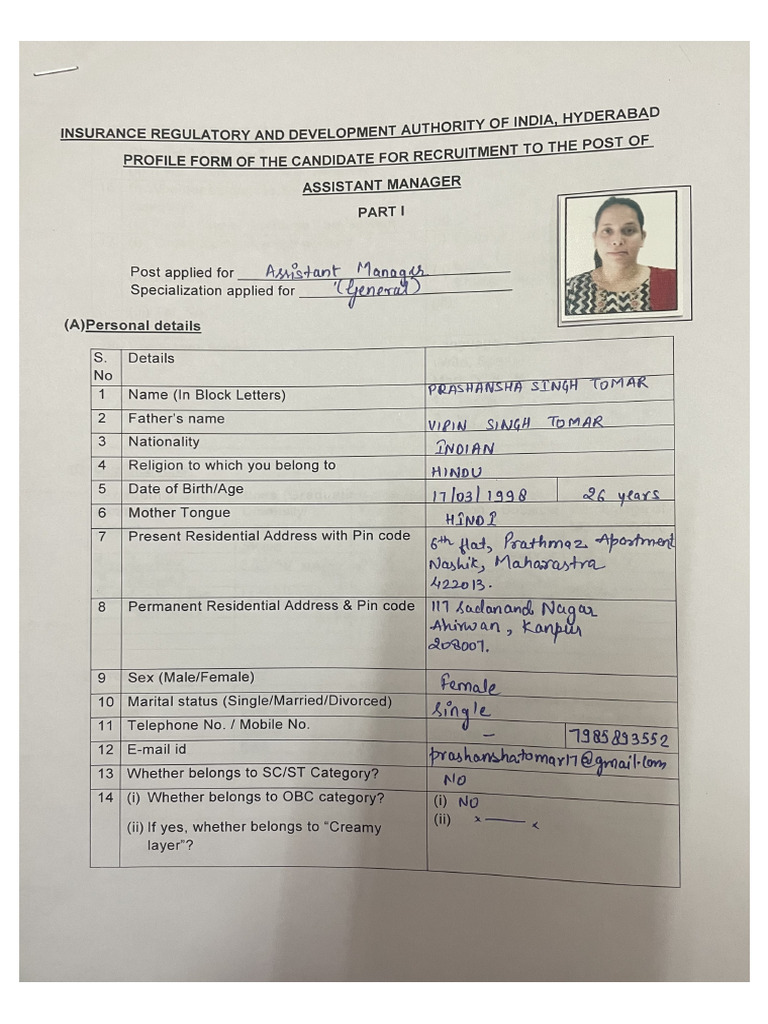 INSURANCE REGULATORY AND DEVELOPMENT AUTHORITY OF INDIA, HYDERABAD
PROFILE FORM OF THE CANDIDATE FOR RECRUITMENT TO THE POST OF
ASSISTANT MANAGER
PART I
Post applied for Assistant Manager
Specialization applied for (General)
(A)Personal details
S. No Details
1 Name (In Block Letters) PRASHANSHA SINGH TOMAR
2 Father's name VIPIN SINGH TOMAR
3 Nationality INDIAN
4 Religion to which you belong to HINDU
5 Date of Birth/Age 17/03/1998 26 years
6 Mother Tongue HINDI
7 Present Residential Address with Pin code 6th flat, Prathmaz Apartment
Nashik, Maharastra
422013.
8 Permanent Residential Address & Pin code 117 Sadanand Nagar
Ahirwan, Kanpur
208007.
9 Sex (Male/Female) Female
10 Marital status (Single/Married/Divorced) Single
11 Telephone No. / Mobile No. – 7985893552
12 E-mail id prashanshatomar17@gmail.com
13 Whether belongs to SC/ST Category? NO
14 (i) Whether belongs to OBC category? (i) NO
(ii) If yes, whether belongs to "Creamy (ii) x — x
layer"?